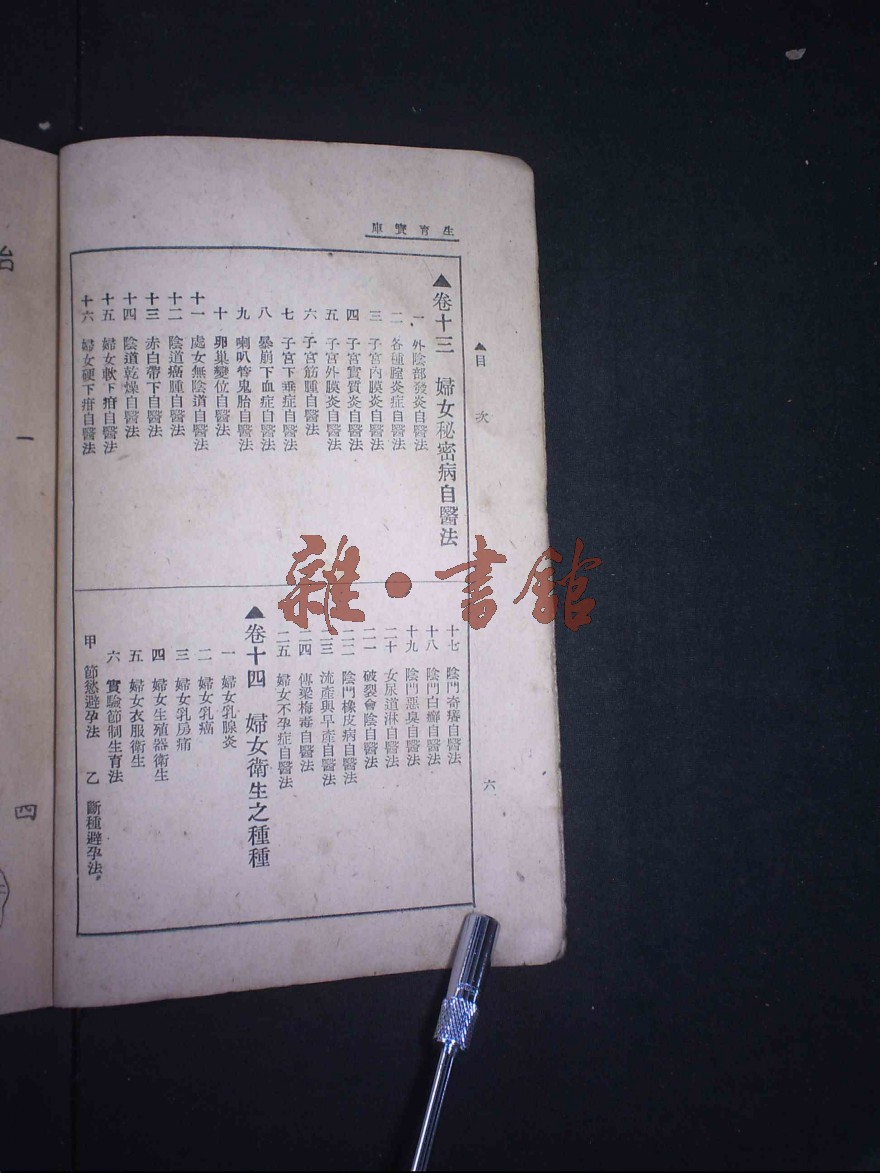 生育寶庫
▲目次
六
▲卷十三 婦女秘密病自醫法
一 外陰部發炎自醫法
二 各種膣炎症自醫法
三 子宮內膜炎自醫法
四 子宮實質炎自醫法
五 子宮外膜炎自醫法
六 子宮筋腫自醫法
七 子宮下垂症自醫法
八 暴崩下血症自醫法
九 喇叭管鬼胎自醫法
十 卵巢變位自醫法
十一 處女無陰道自醫法
十二 陰道癌腫自醫法
十三 赤白帶下自醫法
十四 陰道乾燥自醫法
十五 婦女軟下疳自醫法
十六 婦女硬下疳自醫法
十七 陰門奇癢自醫法
十八 陰門白癬自醫法
十九 陰門惡臭自醫法
二十 女尿道淋自醫法
二一 破裂會陰自醫法
二二 陰門橡皮病自醫法
二三 流產與早產自醫法
二四 傳染梅毒自醫法
二五 婦女不孕症自醫法
▲卷十四 婦女衛生之種種
一 婦女乳腺炎
二 婦女乳癌
三 婦女乳房痛
四 婦女生殖器衛生
五 婦女衣服衛生
六 實驗節制生育法
甲 節慾避孕法 乙 斷種避孕法。
一
四
雜·書館